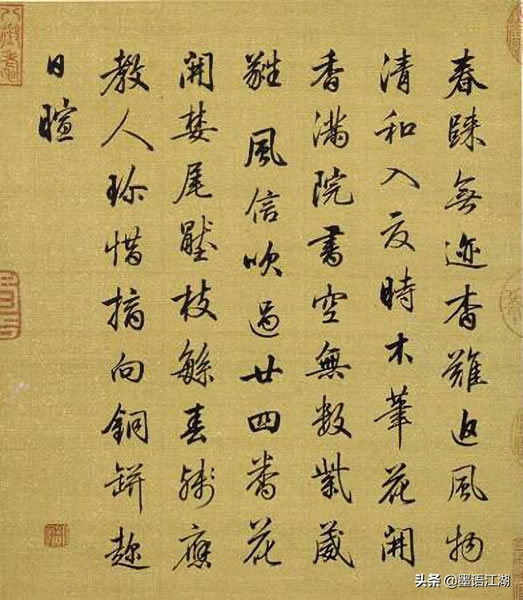 春踪無迹杳難追風物
清和入夏時木筆花開
香滿院書空無數紫葳
蕤風信吹過廿四番花
開婪尾壓枝繁春殘應
教人珍惜摘向銅缾趂
日暄
頭条 @墨语江湖